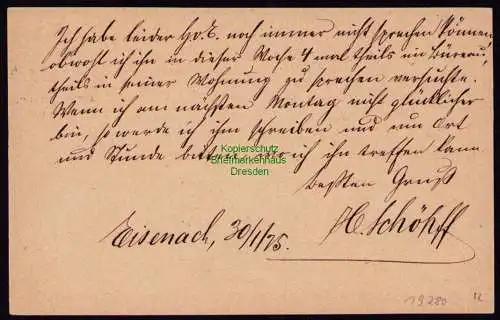 Ich habe leider H. v. E. noch immer nicht sprechen können
obwohl ich ihn in dieser Woche 4 mal theils im Büreau,
theils in seiner Wohnung zu sprechen versuchte.
Wenn ich am nächsten Montag nicht glücklicher
bin, so werde ich ihm schreiben und um Ort
und Stunde bitten, wo ich ihn treffen kann.
Besten Gruß
Eisenach, 30/1/75.
Kopierschutz
Briefmarkenhaus
Dresden
19280
12